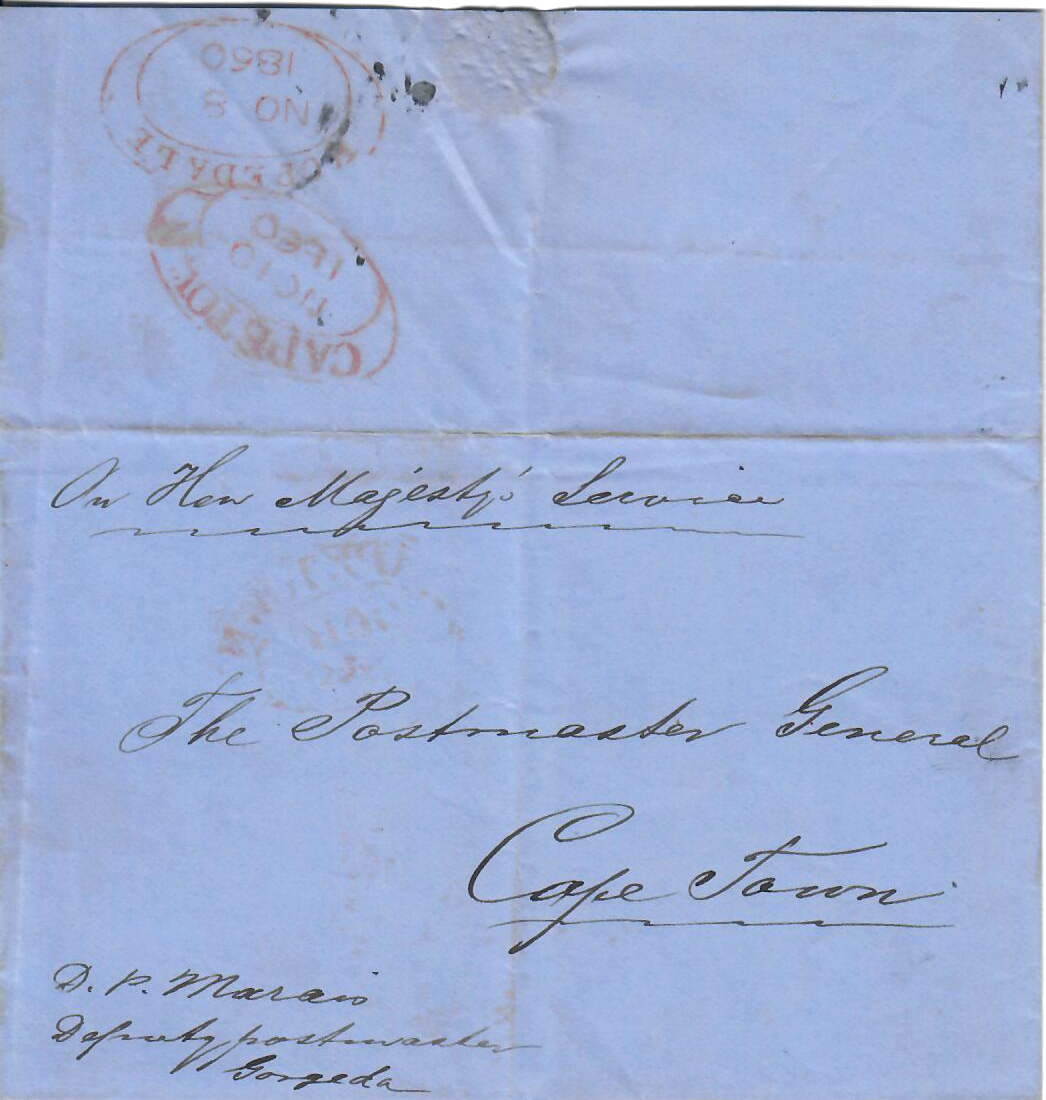 HOPEDALE
NO 8
1860
CAPETOW
10
On Her Majesty's Service
The Postmaster General
Cape Town
D. P. Marais
Deputy postmaster
Gorgeda